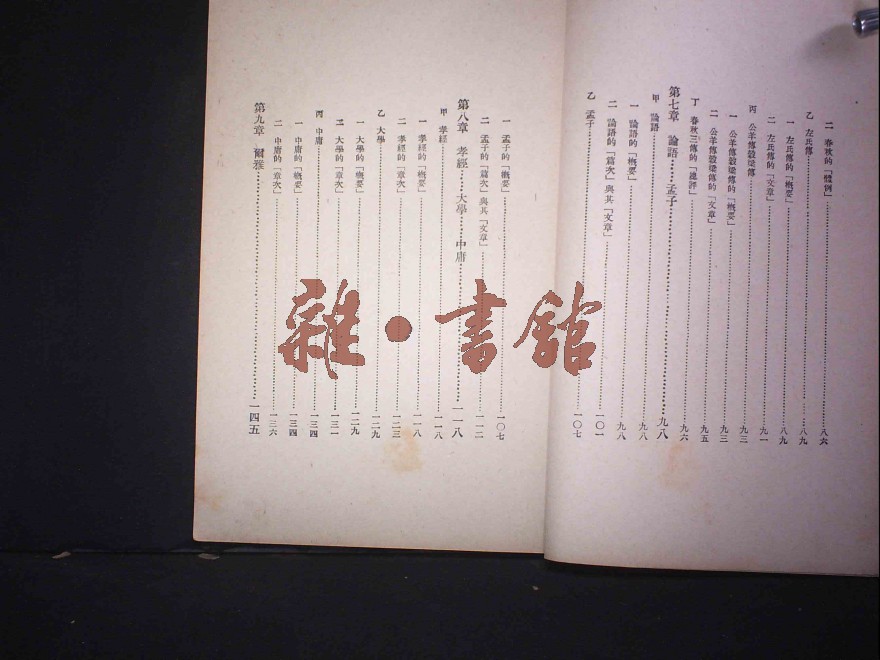 二 春秋的「體例」 八六
乙 左氏傳 八九
一 左氏傳的「概要」 八九
二 左氏傳的「文章」 九一
丙 公羊傳穀梁傳 九三
一 公羊傳穀梁傳的「概要」 九三
二 公羊傳穀梁傳的「文章」 九五
丁 春秋三傳的「總評」 九六
第七章 論語……孟子 九八
甲 論語 九八
一 論語的「概要」 九八
二 論語的「篇次」與其「文章」 一〇一
乙 孟子 一〇七
一 孟子的「概要」 一〇七
二 孟子的「篇次」與其「文章」 一一二
第八章 孝經……大學……中庸 一一八
甲 孝經 一一八
一 孝經的「概要」 一一八
二 孝經的「章次」 一二三
乙 大學 一二九
一 大學的「概要」 一二九
二 大學的「章次」 一三一
丙 中庸 一三四
一 中庸的「概要」 一三四
二 中庸的「章次」 一三六
第九章 爾雅 一四五
雜·書館